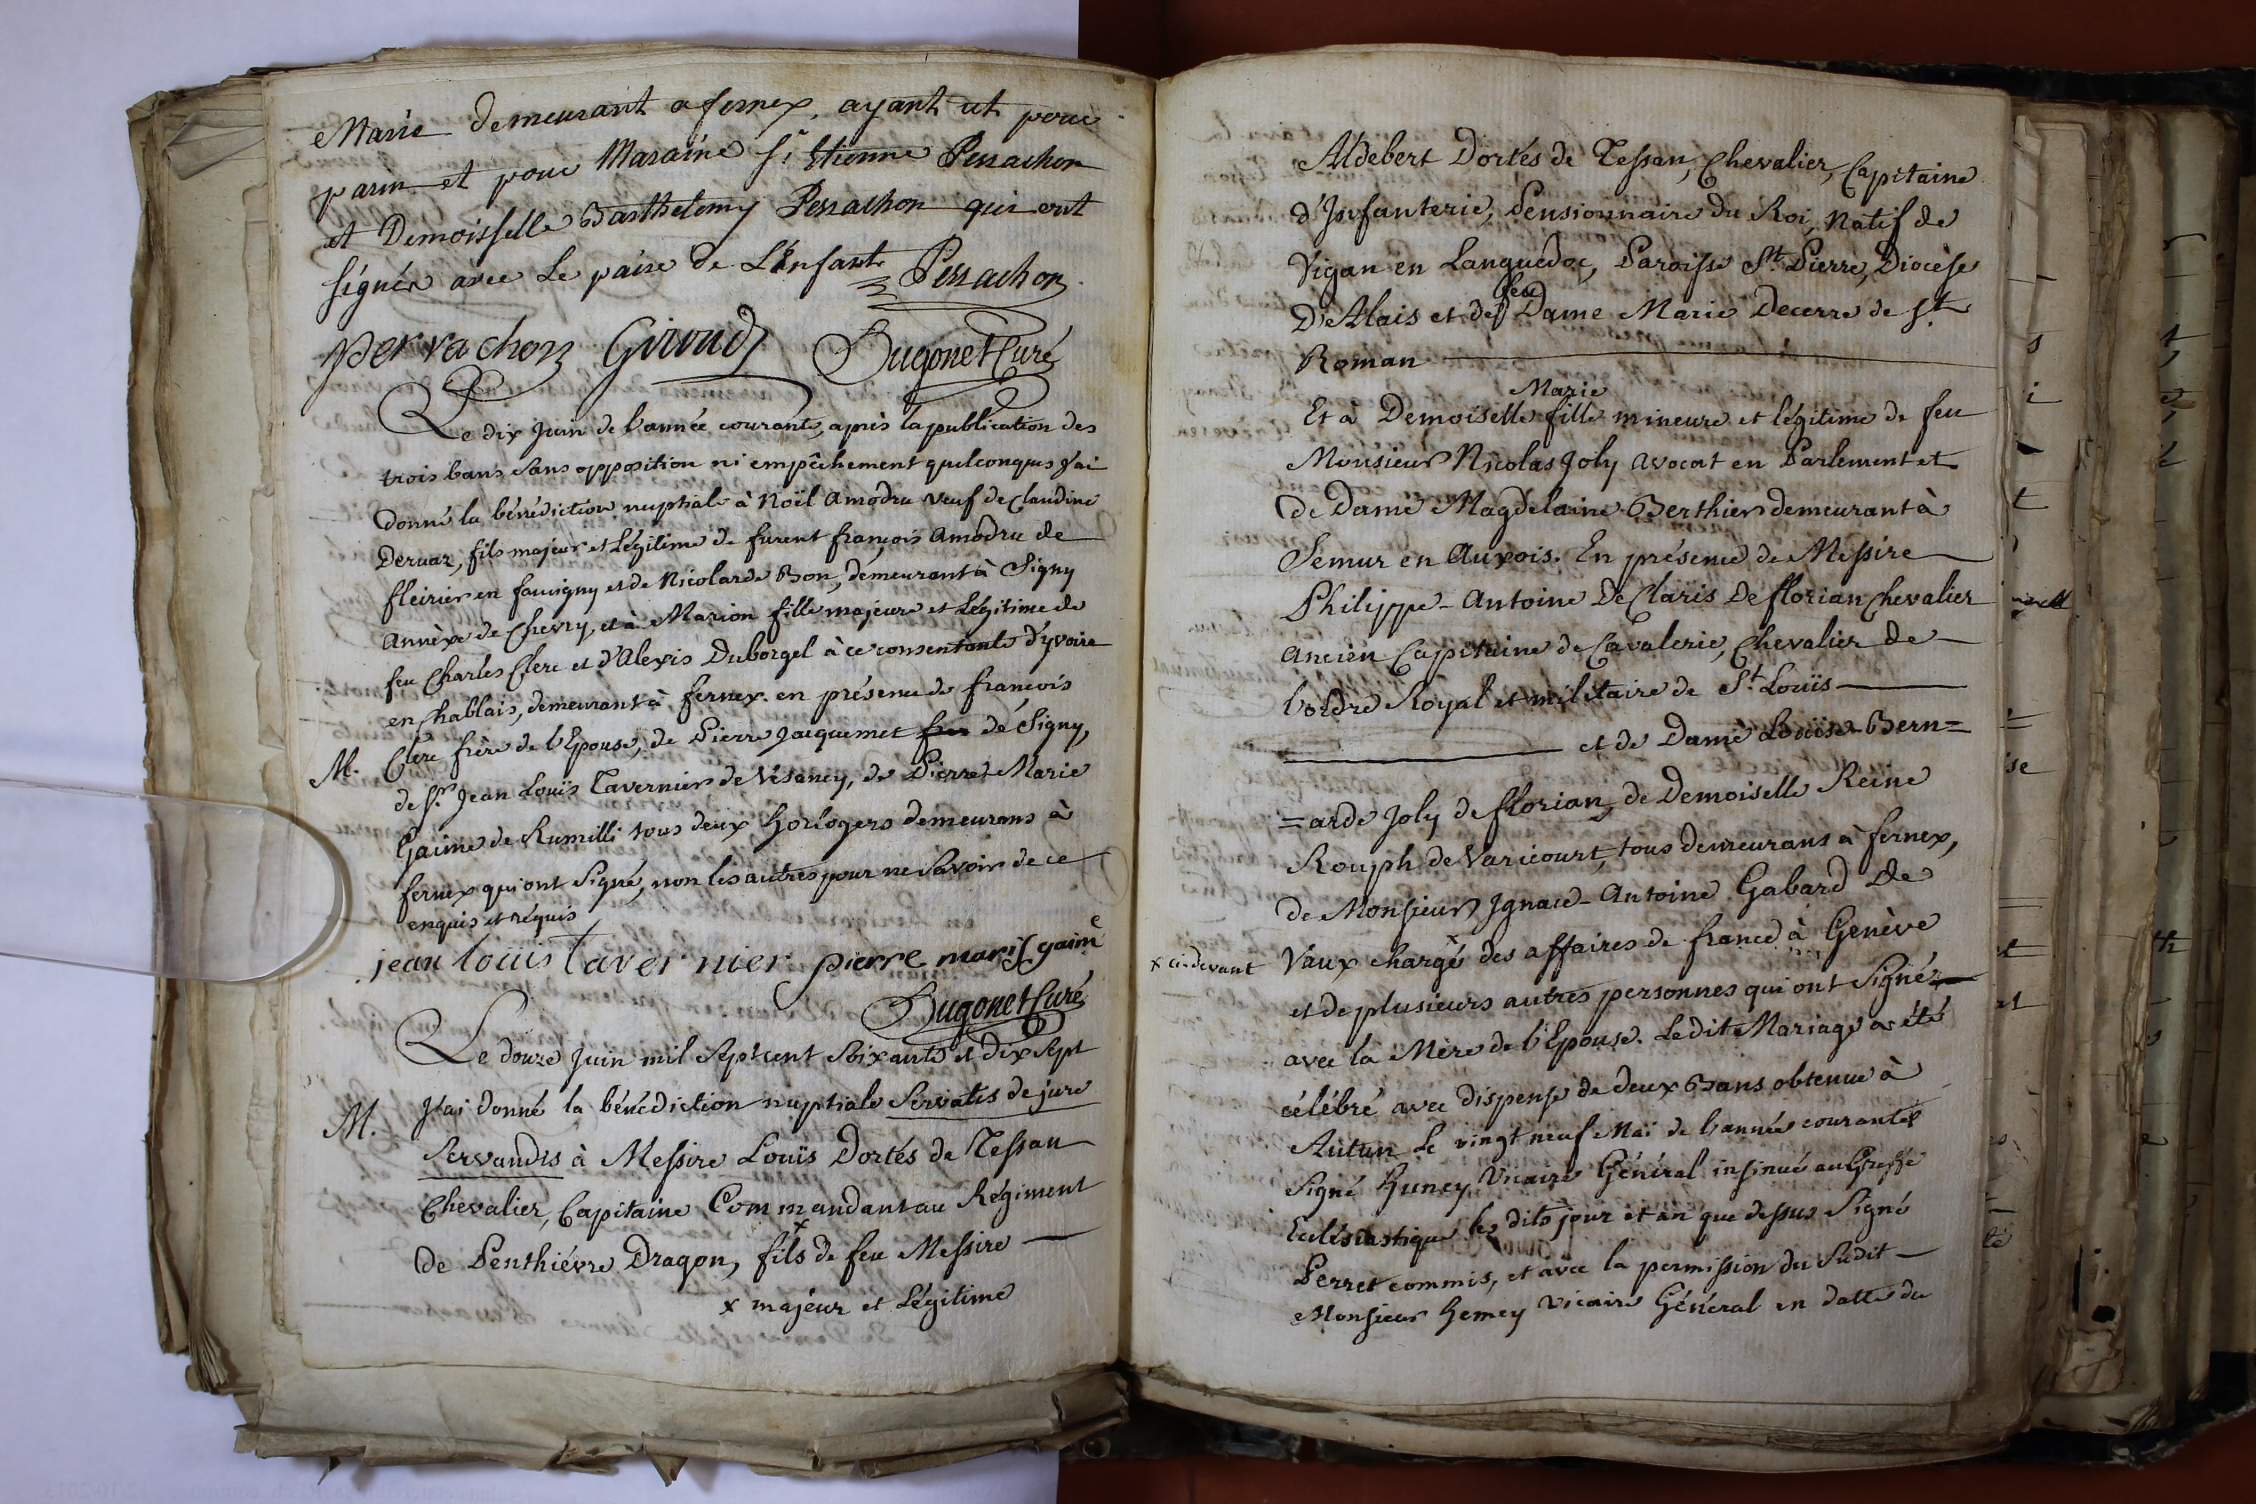 Marie demeurant a fernex, ayant ut pour
parin et pour Maraine Sr. Etienne Perrachon
et Demoisselle Barthelemy Perrachon qui ont
signés avec Le paire de L'Enfant Perrachon
perrachon Giroud Hugonet Curé
Le dix Juin de l'année courante, après la publication des
trois bans sans opposition ni empêchement quelconques j'ai
donné la bénédiction nuptiale à Noël Amodru veuf de Claudine
Dervaz, fils majeur et Légitime de furent françois Amodru de
fleirier en faucigny et de Nicolarde Bon, demeurant à Signy
Annèxe de Chevry, et à Marion fille majeure et Légitime de
feu Charles Clerc et d'Alexis Duborgel à ce consentante d'yvoire
en Chablais, demeurant à fernex. en présence de françois
M. Clerc frère de l'Epouse, de Pierre Jacquemet de Signy,
de Sr. Jean Louïs Tavernier de Vésancy, de Pierre Marie
Gaime de Rumilli tous deux horlogers demeurans à
fernex qui ont Signé, non les autres pour ne Savoir de ce
enquis et réquis
jean louiis tavernier pierre marie gaime
Hugonet Curé
Le douze Juin mil Sept cent Soixante et dix Sept
M. J'ai donné la bénédiction nuptiale Servatis de jure
Servandis à Messire Louïs Dortés de Tessan
Chevalier, Capitaine Commandant au Régiment
de Penthiévre Dragon, x fils de feu Messire
x majeur et Légitime
Aldebert Dortés de Tessan, Chevalier, Capitaine
d'Infanterie, Pensionnaire du Roi, Natif de
Vigan en Languedoc, Paroisse St. Pierre, Diocèse
D'Alais et de feu Dame Marie Decerre de St
Roman
Et à Demoiselle Marie fille mineure et légitime de feu
Monsieur Nicolas Joly Avocat en Parlement et
de Dame Magdelaine Berthier demeurant à
Semur en Auxois. En présence de Messire
Philippe-Antoine De Claris De florian Chevalier
Ancien Capitaine de Cavalerie, Chevalier de
l'ordre Royal et militaire de St. Louïs
et de Dame Louïse Bern=
=arde Joly de florian, de Demoiselle Reine
Rouph de Varicourt, tous demeurans à fernex,
de Monsieur Ignace-Antoine Gabard De
x ci-devant Vaux x chargé des affaires de france à Genève
et de plusieurs autres personnes qui ont Signé
avec la Mère de l'Epouse. Le dit Mariage a été
célébré avec dispense de deux Bans obtenue à
Autun Le vingt neuf Mai de l'année courante
Signé Gemey Vicaire Général insinué au Greffe
Eclésiastique les dits jour et an que dessus Signé
Perret commis, et avec la permission du Sudit
Monsieur Gemey Vicaire Général en datte du